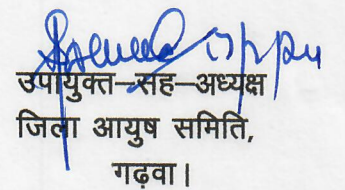 उपायुक्त–सह–अध्यक्ष
जिला आयुष समिति,
गढ़वा।